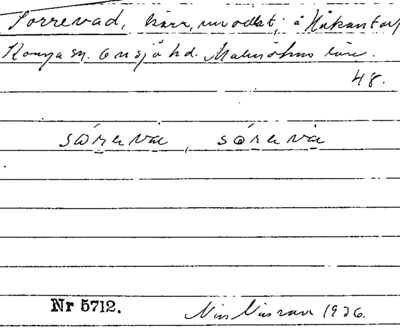 Sorrevad, kärr, uuodlat; å Håkanstorp
Konga sn. Onsjö hd. Malmöhus län.
48.
sórəva, sórəva
Nr 5712.
Nils Nilsson 1926.